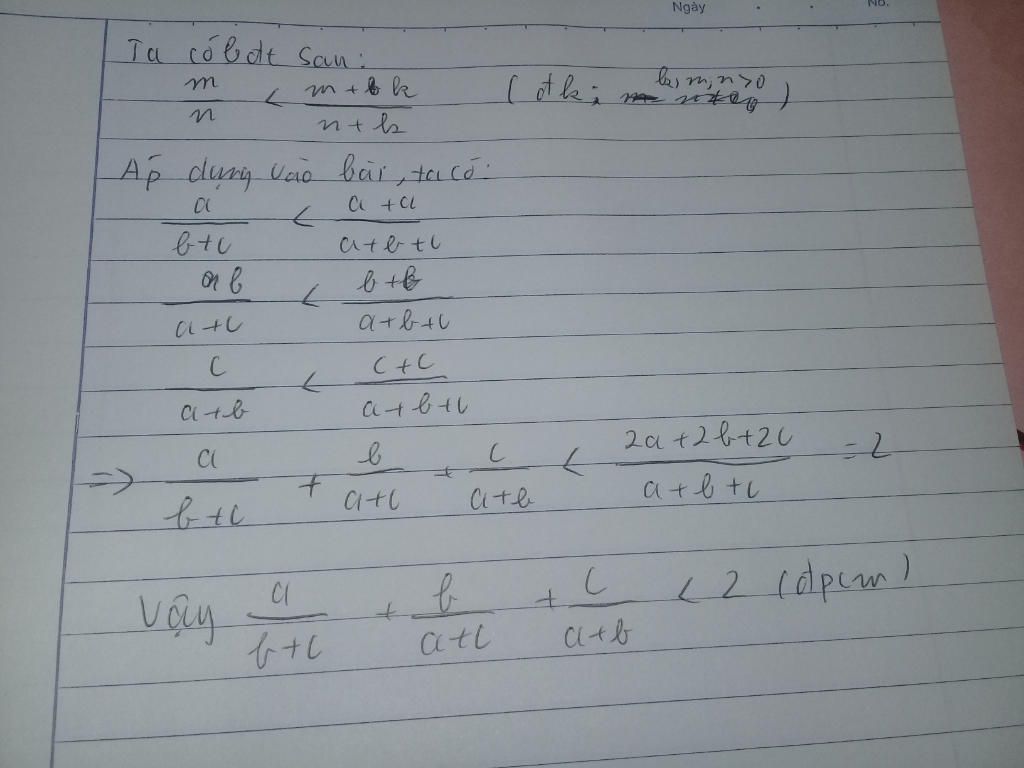 Ngày No.
Ta có bđt sau:
m/n < (m+k)/(n+k) (đk: k, m, n>0)
Áp dụng vào bài, ta có:
a/(b+c) < (a+a)/(a+b+c)
b/(a+c) < (b+b)/(a+b+c)
c/(a+b) < (c+c)/(a+b+c)
=> a/(b+c) + b/(a+c) + c/(a+b) < (2a+2b+2c)/(a+b+c) = 2
Vậy a/(b+c) + b/(a+c) + c/(a+b) < 2 (đpcm)